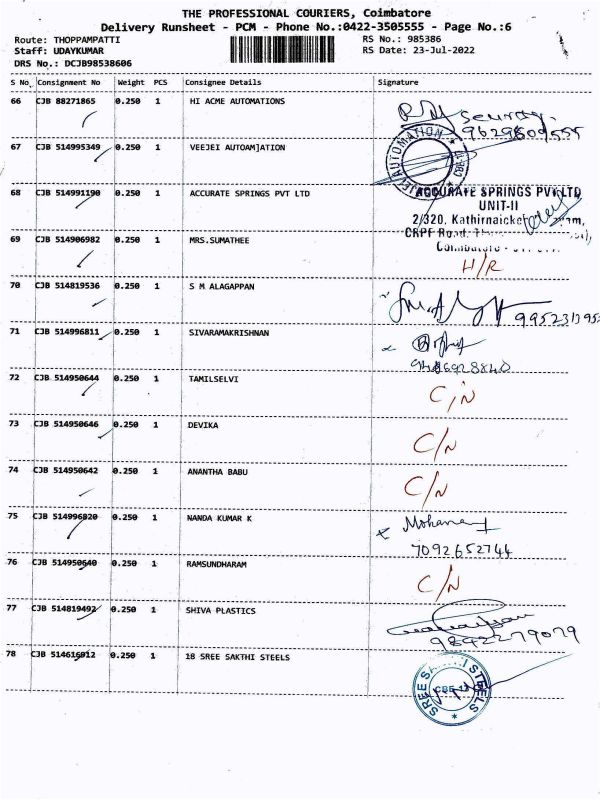 THE PROFESSIONAL COURIERS, Coimbatore
Delivery Runsheet - PCM - Phone No.:0422-3505555 - Page No.:6
Route: THOPPAMPATTI RS No.: 985386
Staff: UDAYKUMAR RS Date: 23-Jul-2022
DRS No.: DCJB98538606
S No Consignment No Weight PCS Consignee Details Signature
66 CJB 88271865 0.250 1 HI ACME AUTOMATIONS
67 CJB 514995349 0.250 1 VEEJEI AUTOAM]ATION
AUTOMATION
68 CJB 514991190 0.250 1 ACCURATE SPRINGS PVT LTD ACCURATE SPRINGS PVT LTD
UNIT-II
2/320, Kathirnaicke
CRPF Road,
69 CJB 514906982 0.250 1 MRS.SUMATHEE
H/R
70 CJB 514819536 0.250 1 S M ALAGAPPAN
71 CJB 514996811 0.250 1 SIVARAMAKRISHNAN
72 CJB 514950644 0.250 1 TAMILSELVI C/N
73 CJB 514950646 0.250 1 DEVIKA C/N
74 CJB 514950642 0.250 1 ANANTHA BABU C/N
75 CJB 514996820 0.250 1 NANDA KUMAR K
7092652744
76 CJB 514950640 0.250 1 RAMSUNDHARAM C/N
77 CJB 514819492 0.250 1 SHIVA PLASTICS
9842279079
78 CJB 514616912 0.250 1 18 SREE SAKTHI STEELS
SREE STEELS